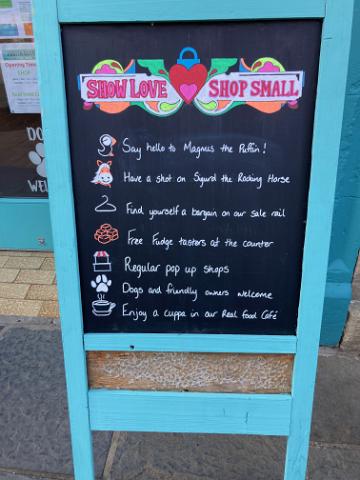 SHOW LOVE SHOP SMALL
Say hello to Magnus the Puffin!
Have a shot on Sigurd the Rocking Horse
Find yourself a bargain on our sale rail
Free Fudge tasters at the counter
Regular pop up shops
Dogs and friendly owners welcome
Enjoy a cuppa in our Real food Café